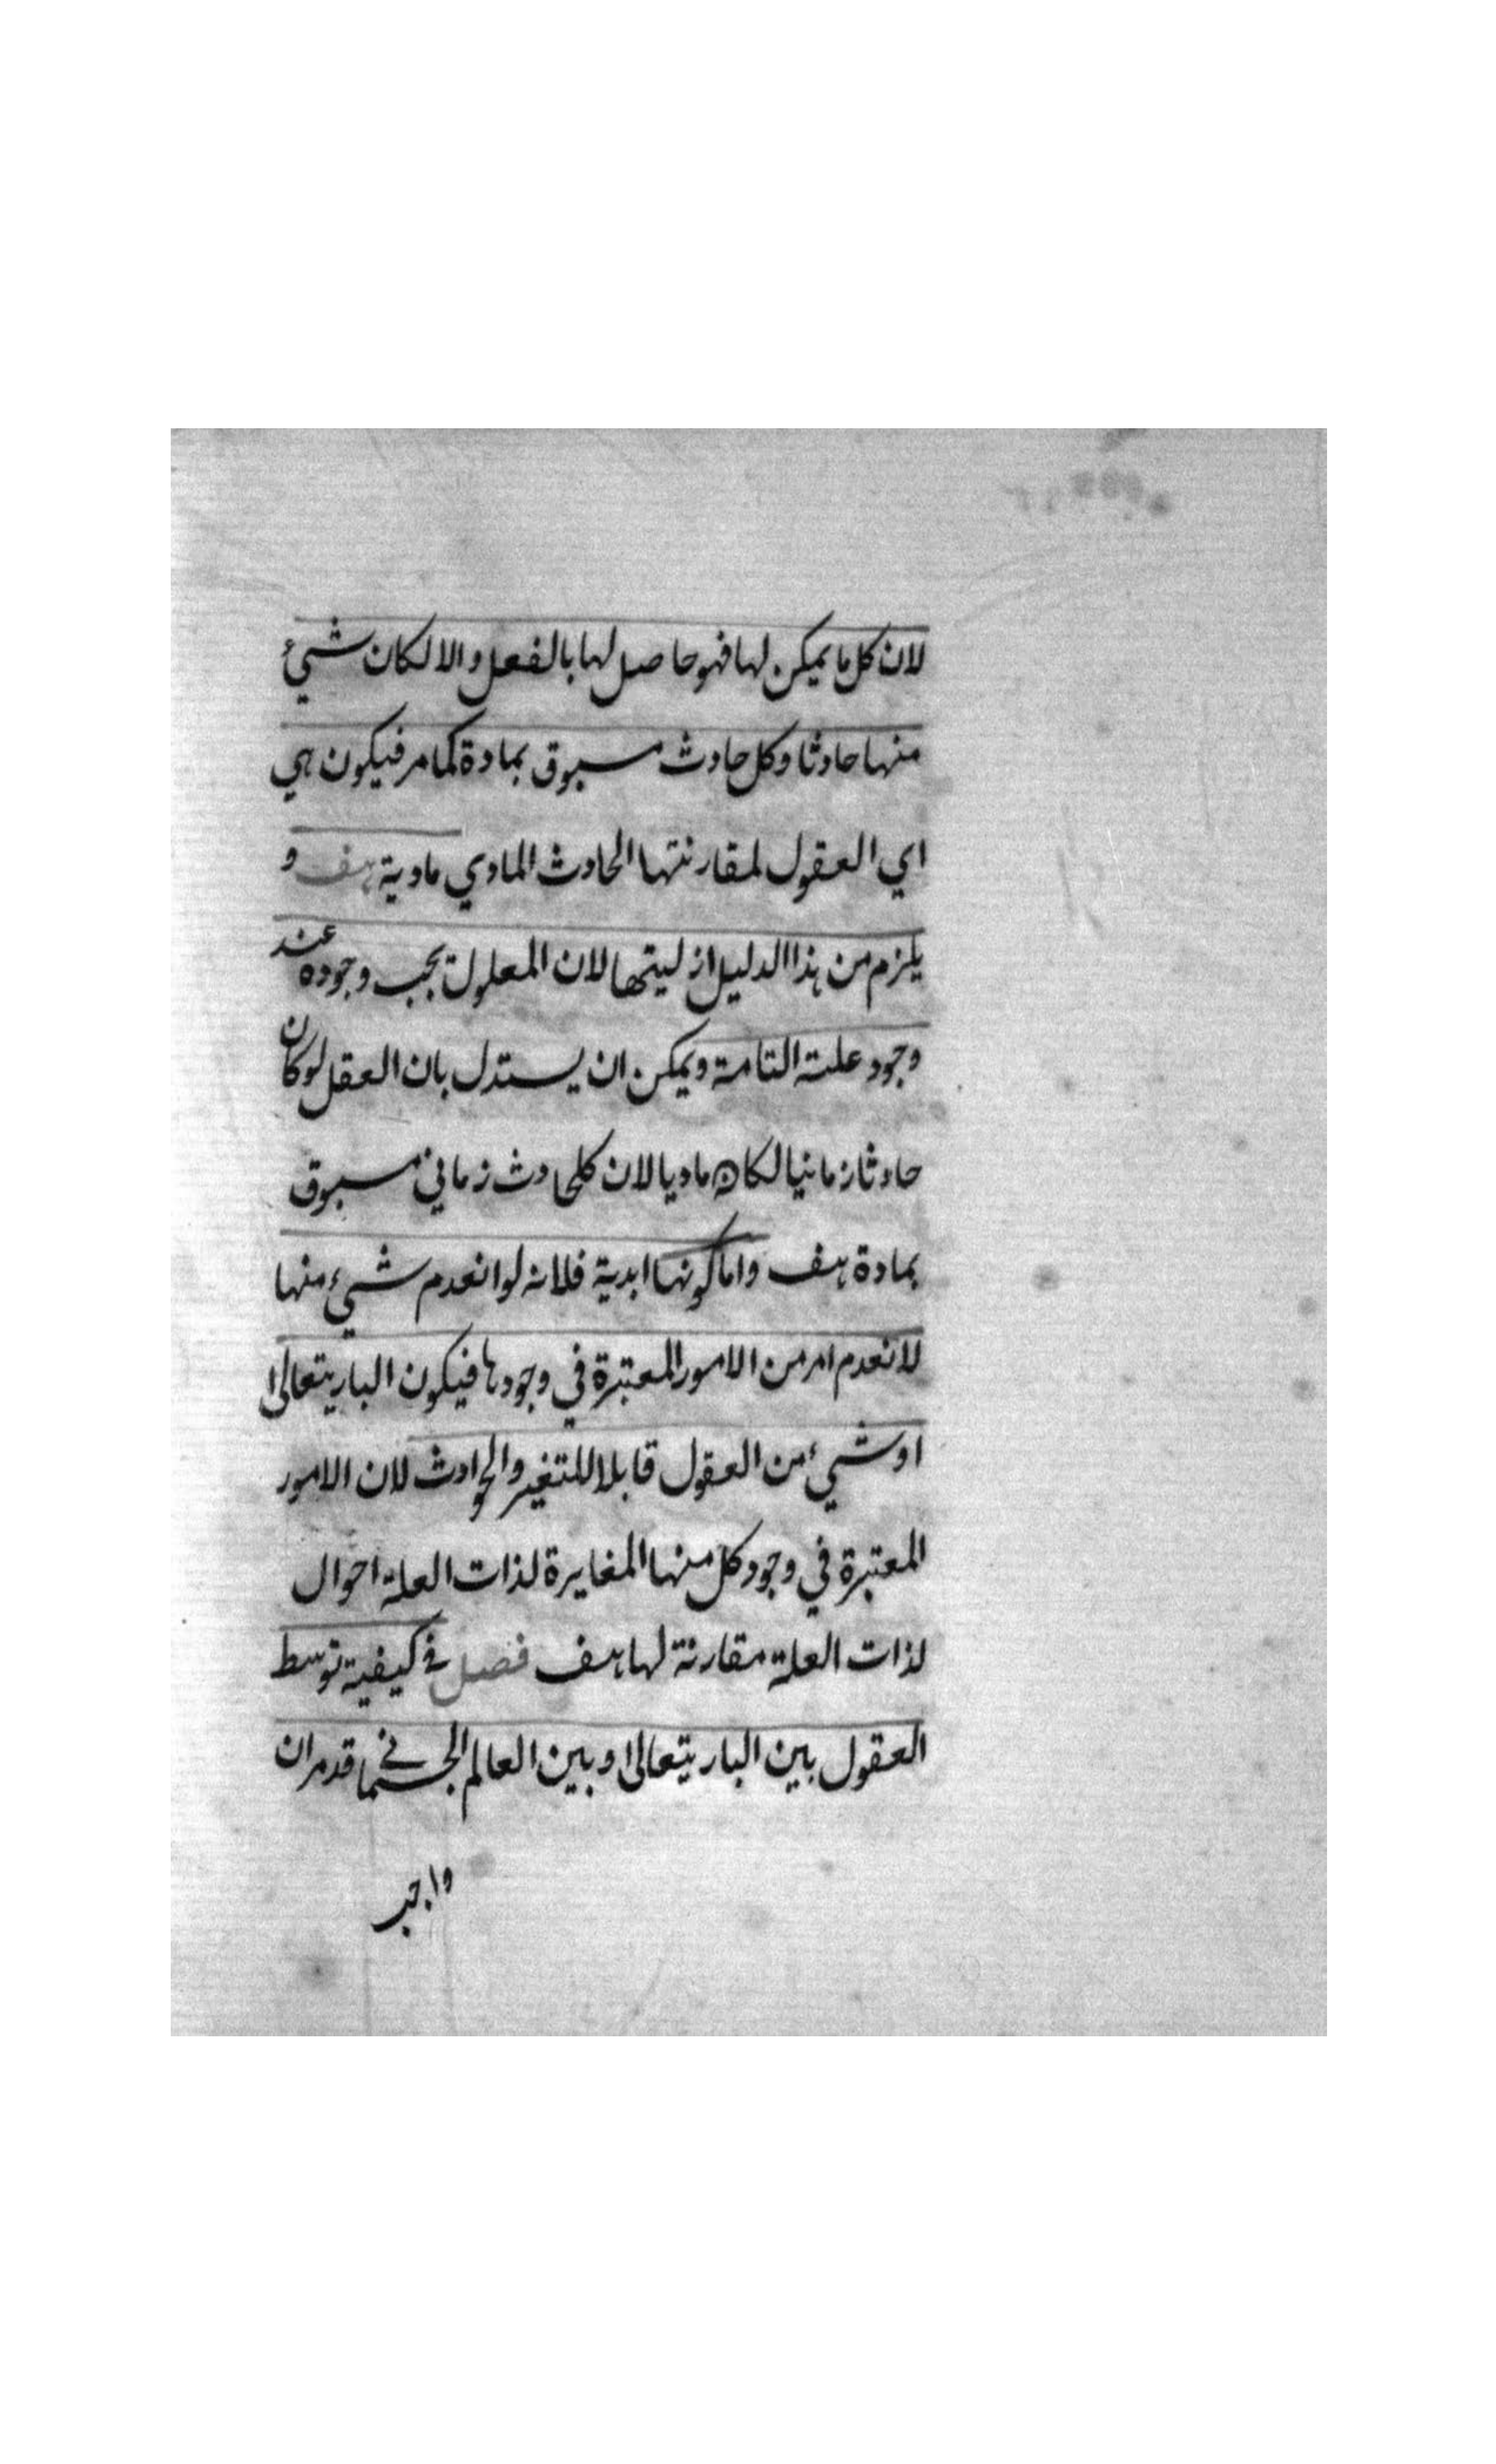 لان كل ما يمكن لها فهو حاصل لها بالفعل والا لكان شيئ
منها حادثا وكل حادث مسبوق بمادة كما مر فيكون هي
اي العقول لمقارنتها الحادث المادي مادية هف و
يلزم من هذا الدليل ازليتها لان المعلول يجب وجوده عند
وجود علته التامة ويمكن ان يستدل بان العقل لو كان
حادثا زمانيا لكان ماديا لان كل حادث زماني مسبوق
بمادة هف واما كونها ابدية فلانه لو انعدم شيئ منها
لانعدم امر من الامور المعتبرة في وجودها فيكون الباريتعالى
او شيئ من العقول قابلا للتغير والحوادث لان الامور
المعتبرة في وجود كل منها المغايرة لذات العلة احوال
لذات العلة مقارنة لها هف فصل في كيفية توسط
العقول بين الباريتعالى وبين العالم الجسماني قد مر ان
واجب